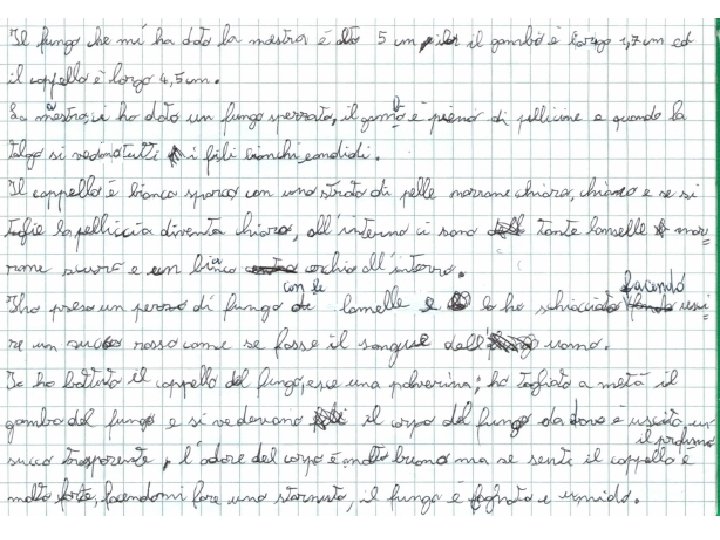 Il fungo che mi ha dato la maestra è alto 5 cm il gambo è largo 1,7 cm ed
il cappello è largo 4,5 cm.
La maestra ci ha dato un fungo spezzato, il gambo è pieno di pellicine e quando la
tolgo si vedono tutti i fili bianchi candidi.
Il cappello è bianco sporco con uno strato di pelle marrone chiaro, chiaro e se si
toglie la pelliccia diventa chiaro, all'interno ci sono tante lamelle mar=
rone scuro e un bianco all'interno.
Ho preso un pezzo di fungo con le lamelle e lo ho schiacciato facendo usci
re un succo rosso come se fosse il sangue dell' uomo.
Io ho battuto il cappello del fungo, esce una polverina; ho tagliato a metà il
gambo del fungo e si vedevano il corpo del fungo da dove è uscito un
succo trasparente, l'odore del corpo è molto buono ma se senti il cappello il profumo è
molto forte, facendomi fare uno starnuto, il fungo è bagnato e umido.